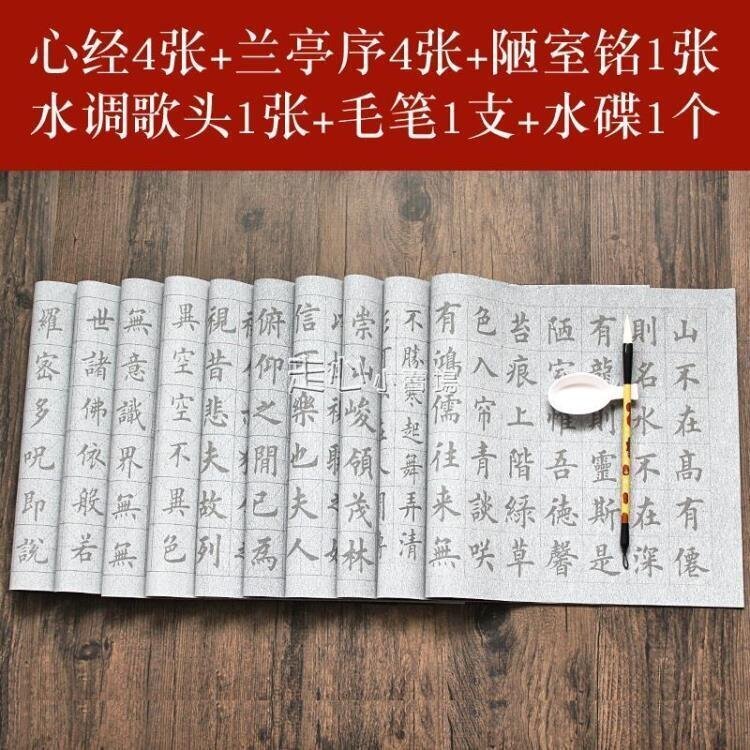 心经4张+兰亭序4张+陋室铭1张
水调歌头1张+毛笔1支+水碟1个
山不在高有僊
則名水不在深
有龍則靈斯是
陋室惟吾徳馨
苔痕上階緑草
色入帘青談咲
有鴻儒往來無
不勝寒起舞弄清
崇山峻領茂林
信可樂也夫人
俯仰之間已為
視昔悲夫故列
異空空不異色
無意識界無無
世諸佛依般若
羅密多呪即說
走心小賣場